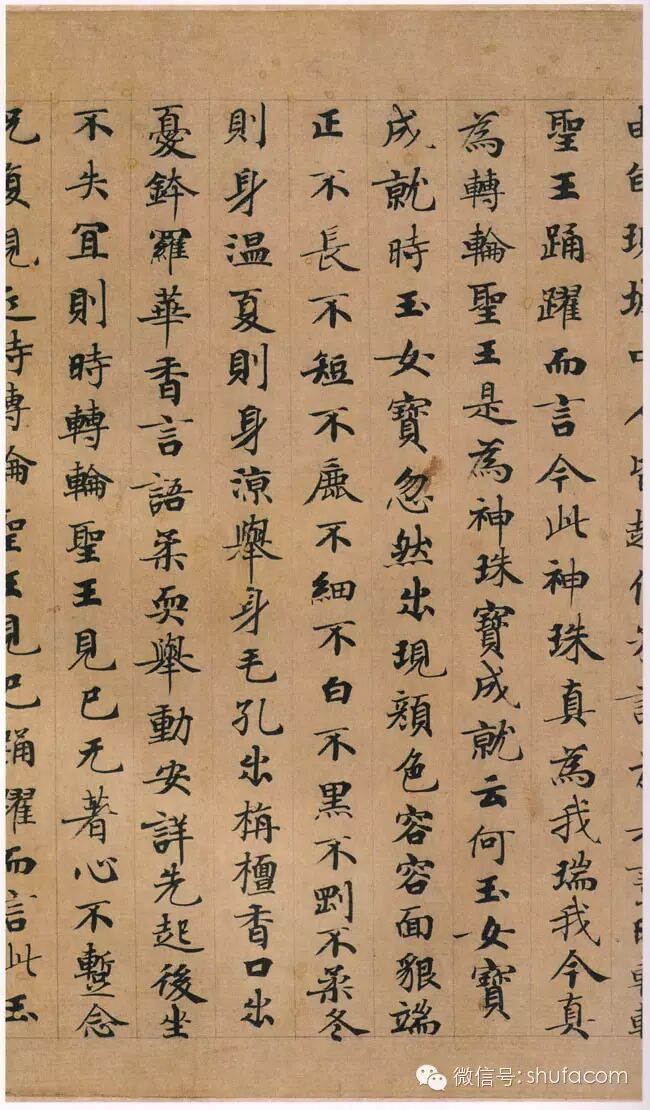 聖王踊躍而言今此神珠真為我瑞我今真
為轉輪聖王是為神珠寶成就云何玉女寶
成就時玉女寶忽然出現顏色容容面貌端
正不長不短不麁不細不白不黑不剛不柔冬
則身温夏則身凉舉身毛孔出栴檀香口出
憂鉢羅華香言語柔耎舉動安詳先起後坐
不失冝則時轉輪聖王見已无著心不蹔念
况復親近時轉輪聖王見已踊躍而言此玉
微信号: shufacom